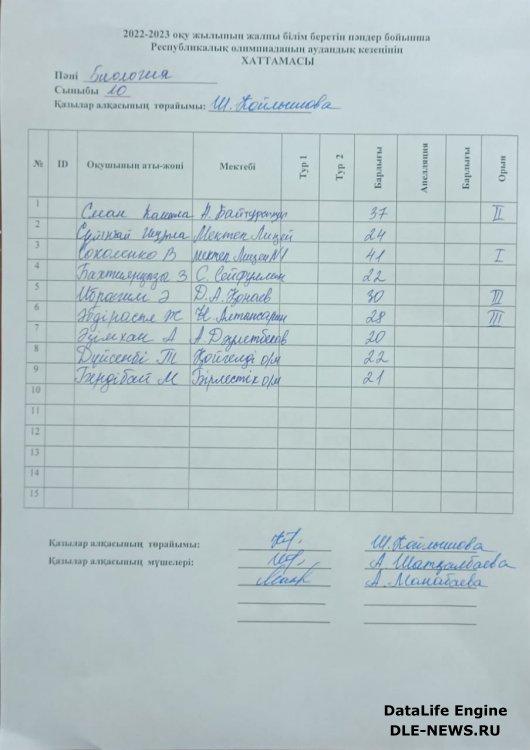 2022-2023 оқу жылының жалпы білім беретін пәндер бойынша
Республикалық олимпиаданың аудандық кезеңінің
ХАТТАМАСЫ
Пәні Биология
Сыныбы 10
Қазылар алқасының төрайымы: Ш. Қойлышова
№ ID Оқушының аты-жөні Мектебі Тур 1 Тур 2 Барлығы Апелляция Барлығы Орын
1 Сман А. Байтұрсынұлы 37 II
2 Мектеп Лицей 24
3 Соколенко В мектеп Лицей №1 41 I
4 Бахтиярқызы З С. Сейфуллин 22
5 Ибрагим Ә Д.А. Қонаев 30 III
6 Әбдірасил Ж Ы. Алтынсарин 28 III
7 Әзімхан А А. Дәулетбеков 20
8 Дүйсенбі Т Қойгелді орм 22
9 Бердібай М Бірлестік орм 21
10
11
12
13
14
15
Қазылар алқасының төрайымы: Ш. Қойлышова
Қазылар алқасының мүшелері: А. Шатқалбаева
А. Манабаева
DataLife Engine
DLE-NEWS.RU